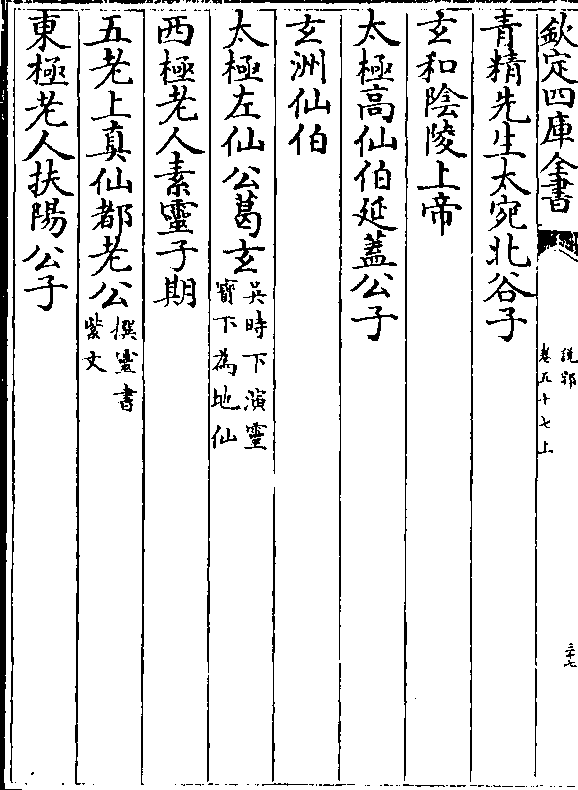 欽定四庫全書
說郛
卷五十七上
三十七
青精先生太宛北谷子
玄和陰陵上帝
太極高仙伯延蓋公子
玄洲仙伯
太極左仙公葛玄吳時下演靈
寶下為地仙
西極老人素靈子期
五老上真仙都老公撰靈書
紫文
東極老人扶陽公子